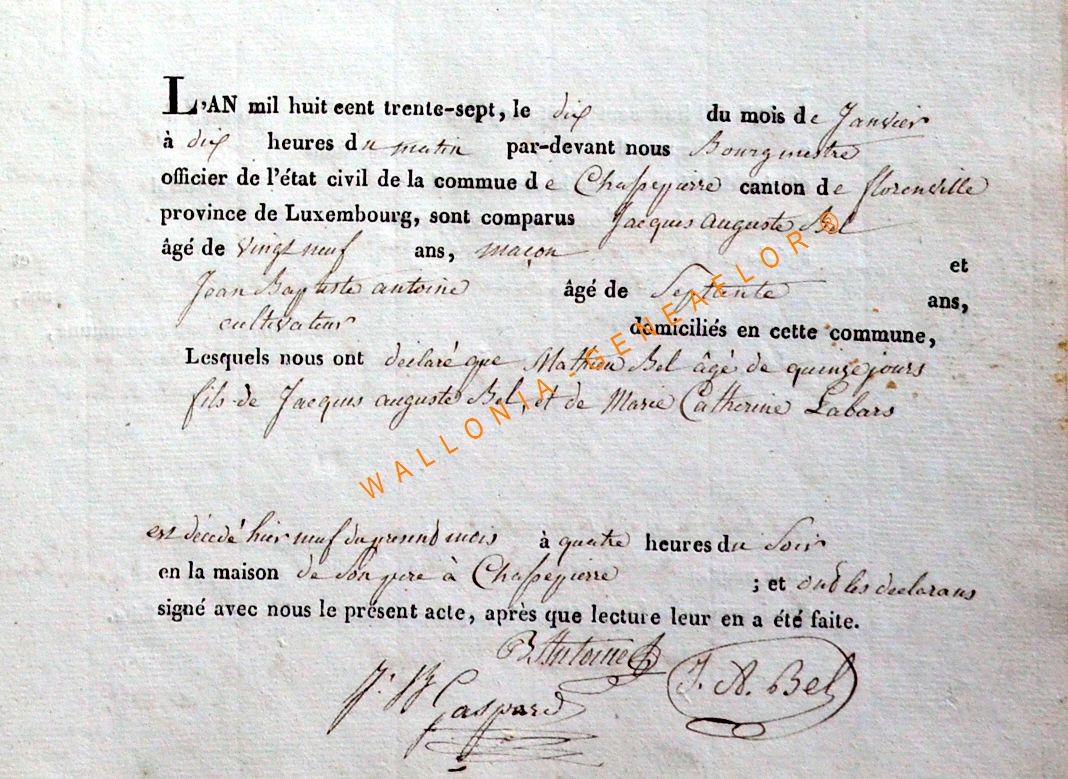 L'AN mil huit cent trente-sept, le dix du mois de Janvier
à dix heures du matin par-devant nous Bourgmestre
officier de l'état civil de la commue de Chassepierre canton de florenville
province de Luxembourg, sont comparus Jacques auguste Bel
âgé de vingt neuf ans, maçon et
Jean Baptiste antoine âgé de Septente ans,
cultivateur domiciliés en cette commune,
Lesquels nous ont declaré que Mathieu Bel âgé de quinze jours
fils de Jacques auguste Bel, et de Marie Catherine Labars
est décédé hier neuf du present mois à quatre heures du Soir
en la maison de son pere à Chassepierre ; et ont les declarans
signé avec nous le présent acte, après que lecture leur en a été faite.
B. Antoine
J. A. Bel
J. B Gaspard
WALLONIA-GENEAFLOR®